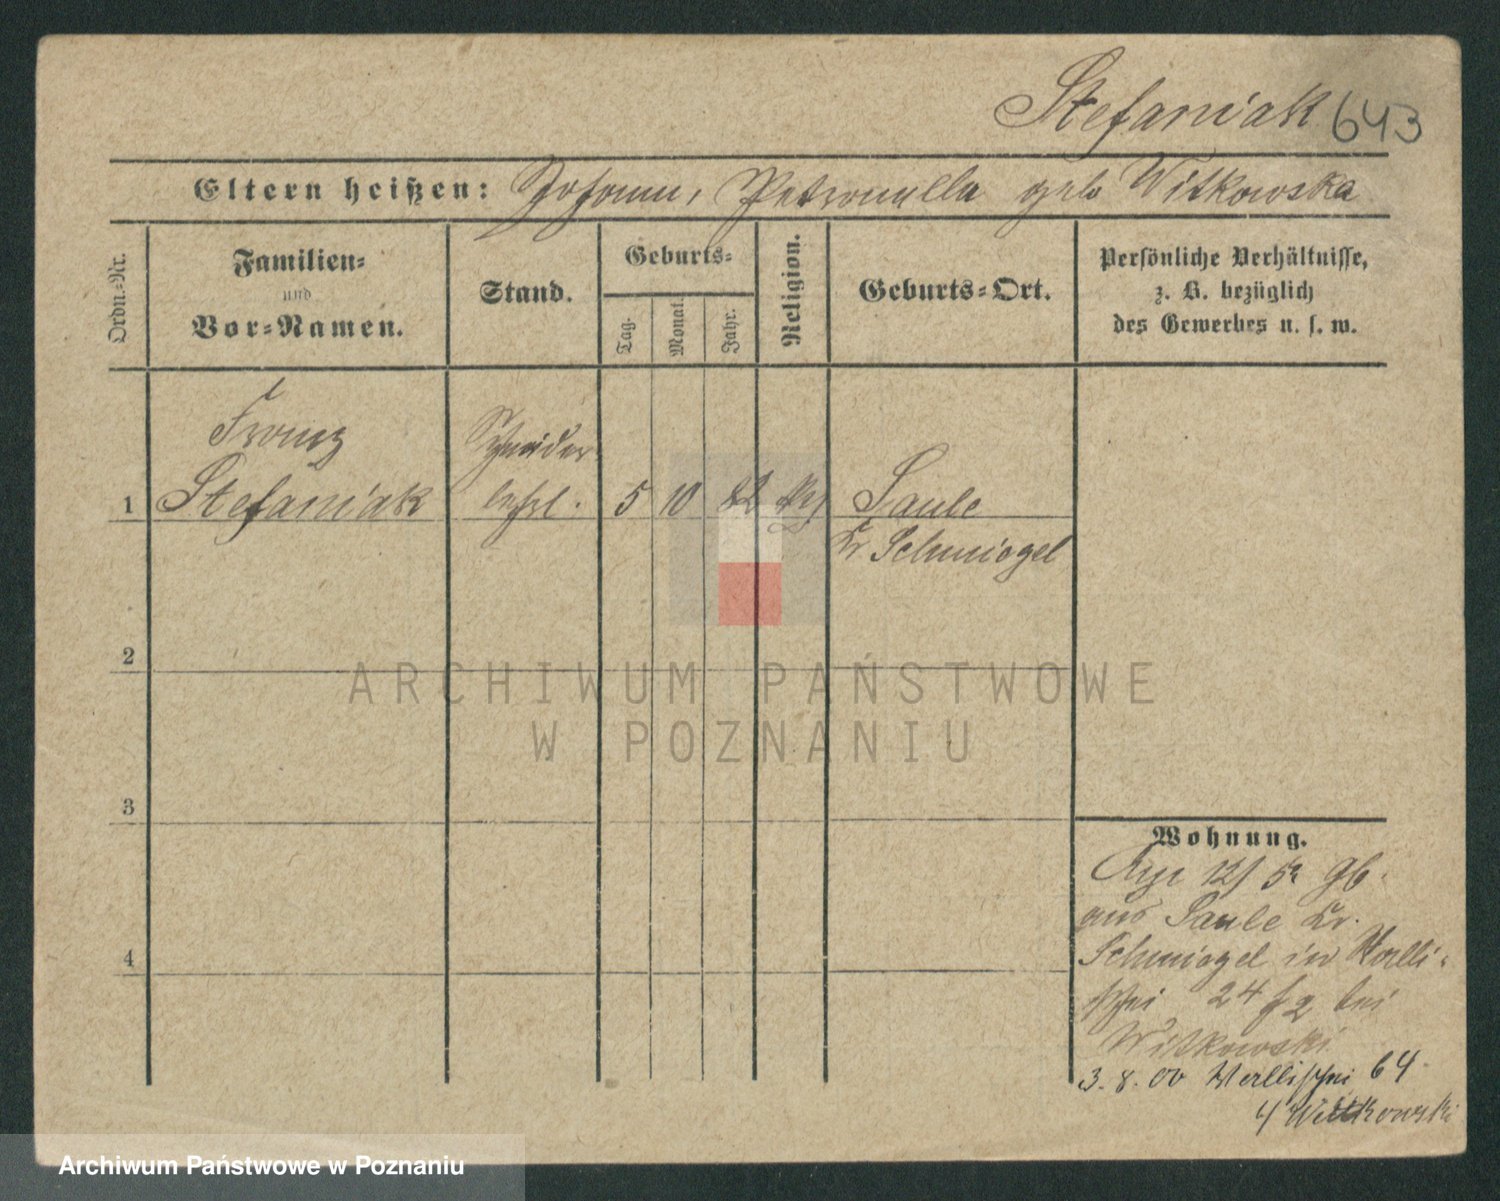 Stefaniak 643
Eltern heißen: Johann, Petronella geb Witkowska
Ordn.-Nr.
Familien-
und
Vor-Namen.
Stand.
Geburts-
Tag.
Monat.
Jahr.
Religion.
Geburts-Ort.
Persönliche Verhältnisse,
z. B. bezüglich
des Gewerbes u. s. w.
Franz Schneider
1 Stefaniak lehrl. 5 10 82 Saule
Kr Schmiegel
2
3
4
Wohnung.
12/5
aus Saule Kr.
Schmiegel in Walli-
schei 24 bei
Witkowski
3. 8. 00 Wallischei 64
Witkowski
ARCHIWUM PAŃSTWOWE
W POZNANIU
Archiwum Państwowe w Poznaniu